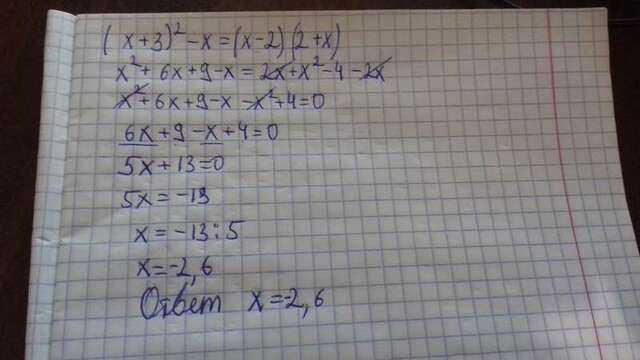 (x+3)²-x=(x-2)(2+x)
x²+6x+9-x=2x+x²-4-2x
x²+6x+9-x-x²+4=0
6x+9-x+4=0
5x+13=0
5x=-13
x=-13:5
x=-2,6
Ответ x=-2,6